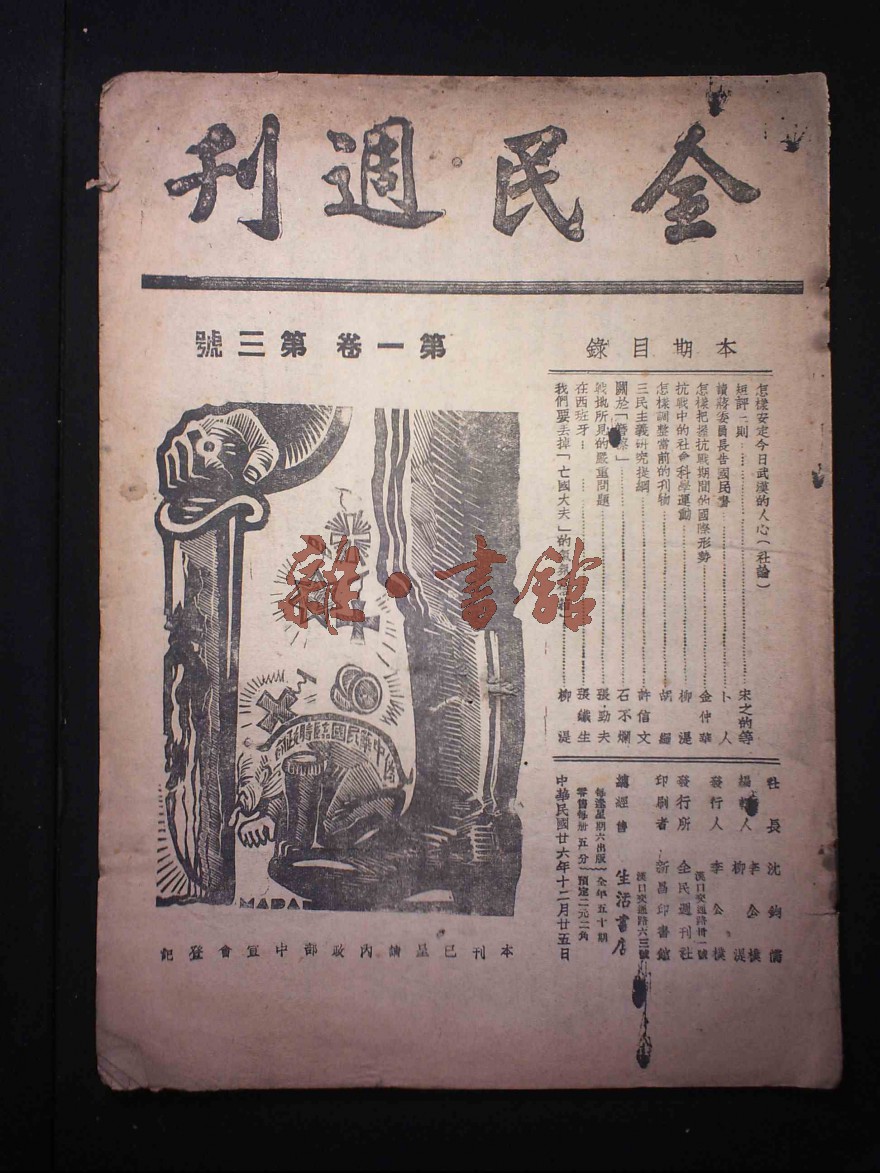 全民週刊
第一卷 第三號
本期目錄
怎樣安定今日武漢的人心(社論)
短評二則……宋之的等
讀蔣委員長告國民書……卜人
怎樣把握抗戰期間的國際形勢……金仲華
抗戰中的社會科學運動……柳湜
怎樣調整當前的刊物……胡繩
三民主義研究提綱……許信文
關於「
」……石不爛
戰地所見的嚴重問題……張勁夫
在西班牙……張鐵生
我們要去掉「亡國大夫」的氣……柳湜
社長 沈鈞儒
編輯人 李公樸 柳湜
發行人 李公樸
發行所 全民週刊社
漢口交通路卅一號
印刷者 新昌印書館
漢口交通路六三號
總經售 生活書店
每逢星期六出版 全年五十期
零售每冊五分 預定二元二角
中華民國廿六年十二月廿五日
中華民國臨時政府
本刊已呈請內政部中宣會登記
雜·書館